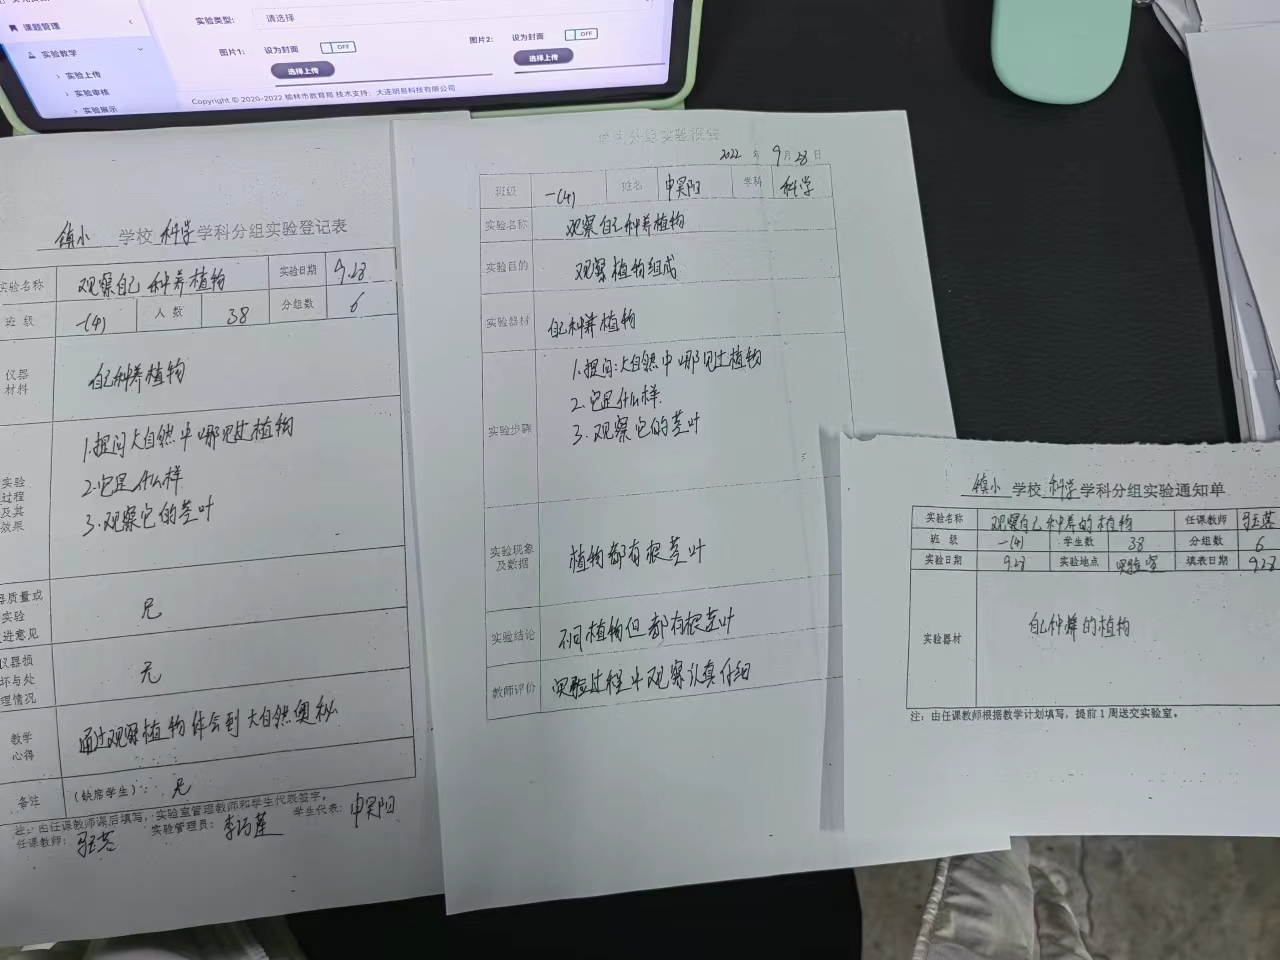 课题管理
实验教学
实验上传
实验审核
实验展示
实验类型: 请选择
图片1: 设为封面 OFF
选择上传
图片2: 设为封面 OFF
选择上传
Copyright © 2020-2022 榆林市教育局 技术支持: 大连明易科技有限公司
镇小 学校 科学 学科分组实验登记表
实验名称 观察自己种养植物 实验日期 9.28
班级 一(4) 人数 38 分组数 6
仪器
材料
自己种养植物
实验
过程
及其
效果
1.提问大自然中哪见过植物
2.它是什么样
3.观察它的茎叶
器质量或
实验
进意见
无
仪器损
坏与处
理情况
无
教学
心得
通过观察植物体会到大自然奥秘
备注 (缺席学生): 无
注: 由任课教师课后填写, 实验室管理教师和学生代表签字。
任课教师: 实验管理员: 李巧莲 学生代表: 申昊阳
学生分组实验报告
2022 年 9 月 28 日
班级 一(4) 姓名 申昊阳 学科 科学
实验名称 观察自己种养植物
实验目的 观察植物组成
实验器材 自己种养植物
实验步骤
1.提问:大自然中哪见过植物
2.它是什么样.
3.观察它的茎叶
实验现象
及数据
植物都有根茎叶
实验结论 不同植物但都有根茎叶
教师评价 实验过程中观察认真仔细
镇小 学校 科学 学科分组实验通知单
实验名称 观察自己种养的植物 任课教师
班级 一(4) 学生数 38 分组数 6
实验日期 9.28 实验地点 实验室 填表日期 9.28
实验器材 自己种养的植物
注: 由任课教师根据教学计划填写, 提前1周送交实验室。